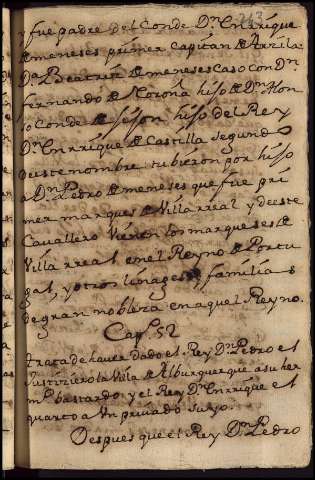 243
y fue padre del Conde Dn Enrrique
de meneses primer capitan de Arzila.
Da Beatriz de meneses Caso con Dn
fernando de Noroña hijo de Dn Alon
so Conde de Jijon hijo del Rey
Dn Enrrique de Castilla segundo
deeste nombre tubieron por hijo
a Dn Pedro de meneses que fue pri
mer marques de Villa rreal y deeste
Cavallero vienen los marqueses de
Villa rreal en el Reyno de Portu
gal, y otros linages y familias
de gran nobleza en aquel Reyno.
Capo 52
trata de haver dado el Rey Dn Pedro el
Justiziero la Villa de Alburquerque a su her
mo bastardo y el Rey Dn Enrrique el
quarto a un privado suyo.
Despues que el Rey Dn Pedro